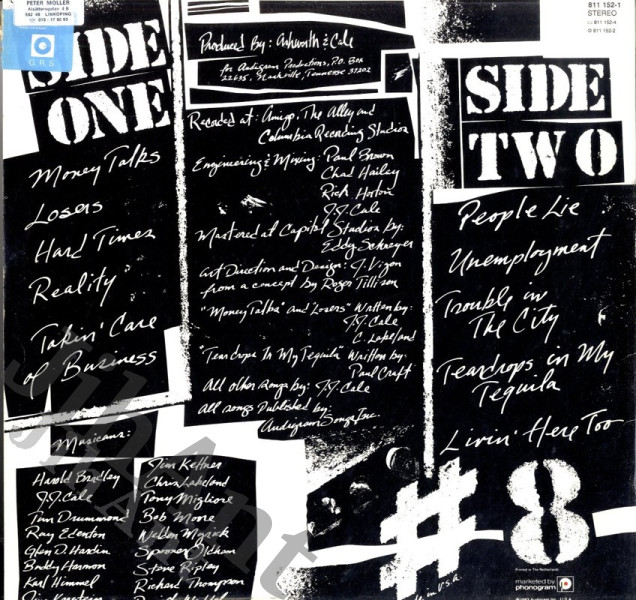 PETER MÖLLER
G.R.S
SIDE
ONE
Money Talks
Losers
Hard Times
Reality
Takin' Care
of Business
Musicians:
Harold Bradley
J.J. Cale
Tim Drummond
Ray Edenton
Glen D. Hardin
Buddy Harmon
Karl Himmel
Jim Keltner
Chris Lakeland
Tony Migliore
Bob Moore
Weldon Myrick
Spooner Oldham
Steve Ripley
Richard Thompson
Produced By: Ashworth & Cale
for Audigram Productions, P.O. Box
22635, Nashville, Tennessee 37202
Recorded at: Amigo, The Alley and
Columbia Recording Studios
Engineering & Mixing: Paul Brown
Chad Hailey
Rick Horton
J.J. Cale
Mastered at Capitol Studios by:
Eddy Schreyer
Art Direction and Design: J. Vigon
from a concept by Roger Tillison
"Money Talks" and "Losers" Written by:
J.J. Cale
C. Lakeland
"Teardrops In My Tequila" Written by:
Paul Craft
All other songs by: J.J. Cale
All songs Published by:
Audigram Songs Inc.
811 152-1
STEREO
811 152-4
811 152-2
SIDE
TWO
People Lie
Unemployment
Trouble in
The City
Teardrops in My
Tequila
Livin' Here Too
#8
Printed in The Netherlands
in U.S.A.
marketed by
phonogram